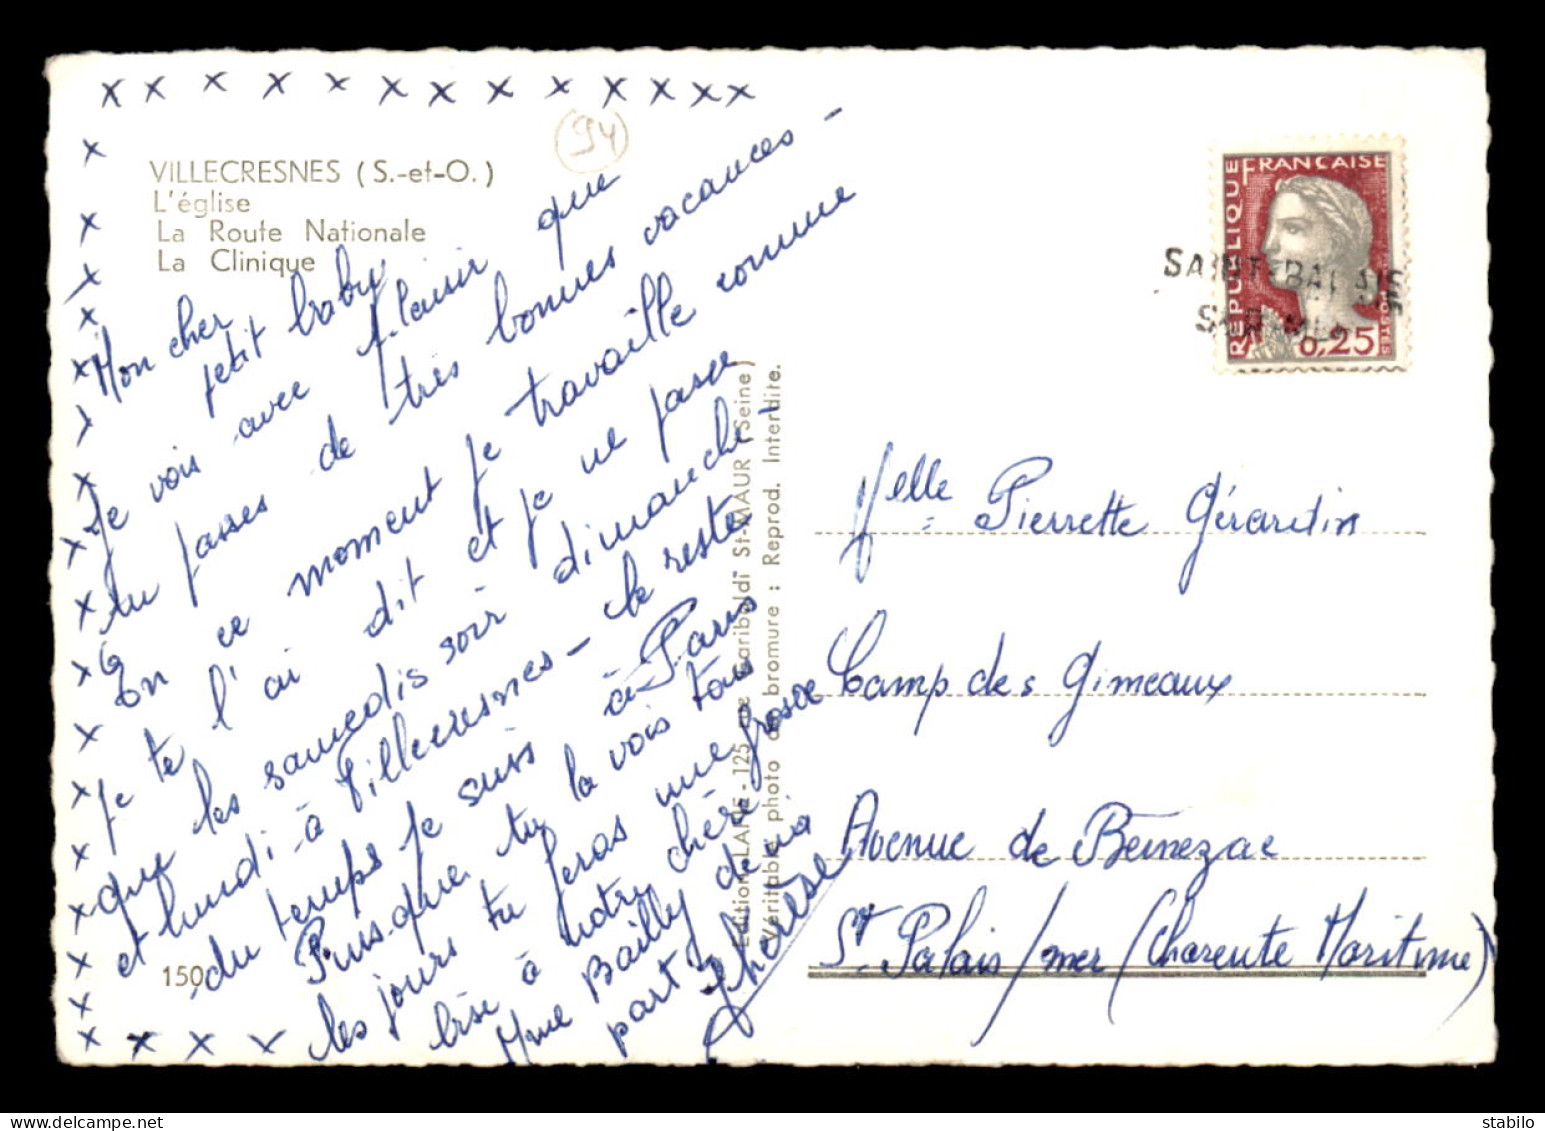 x x x x x x x x x x x x x x
94
VILLECRESNES (S.-et-O.)
L'église
La Route Nationale
La Clinique
Mon cher
petit baby
Je vois avec plaisir que
tu passes de très bonnes vacances -
En ce moment je travaille comme
je te l'ai dit et je ne passe
que les samedis soir dimanche
et lundi à Villecresnes - le reste
du temps je suis à Paris
Puisque tu la vois tous
les jours tu feras une grosse
bise à notre chère
Mme Bailly de ma
part
Thérèse
150
Edition LAPIE - 125, rue Garibaldi St-MAUR (Seine)
Véritable photo au bromure : Reprod. Interdite.
REPUBLIQUE FRANCAISE
POSTES
0,25
SAINT-PALAIS
SUR MER
Melle Pierrette Gérardin
Camp des Gimeaux
Avenue de Bernezac
St Palais/mer (Charente Maritime)